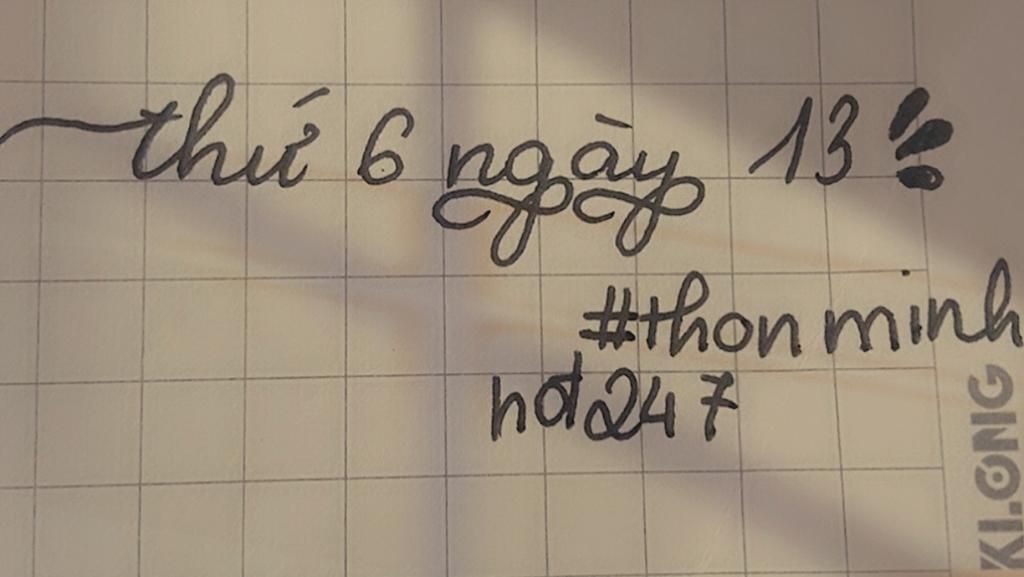 thứ 6 ngày 13
#thon minh
hđ247
KLONG